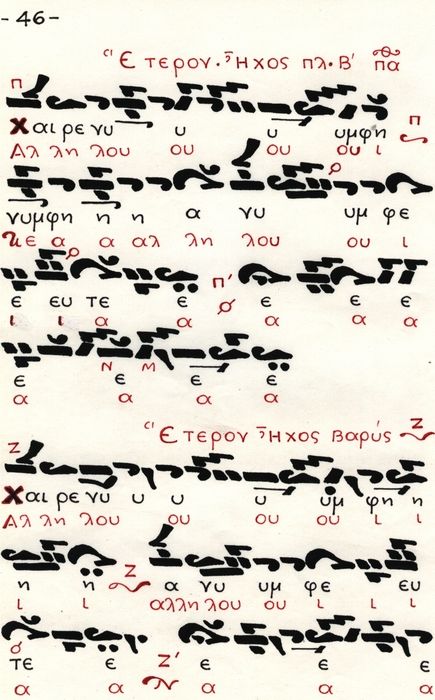 - 46 -
Ἕτερον. Ἦχος πλ. Β' πα
π
Χαι ρε νυ υ υ υμφη π
Αλ λη λου ου ου ου ι
νυμφη η η α νυ υμ φε
κε α α αλ λη λου ου ι
ε ευ τε ε π' ε ε ε
ι ι α α α α α
Ν Μ
ε ε ε ε
α α α α
Ἕτερον Ἦχος Βαρύς Ζ
Ζ
Χαι ρε νυ υ υ υμ φη η
Αλ λη λου ου ου ου ι ι
η η Ζ α νυ υμ φε ευ
ι ι αλλη λου ου ι ι ι
τε ε Ζ' ε ε ε
α α α α α